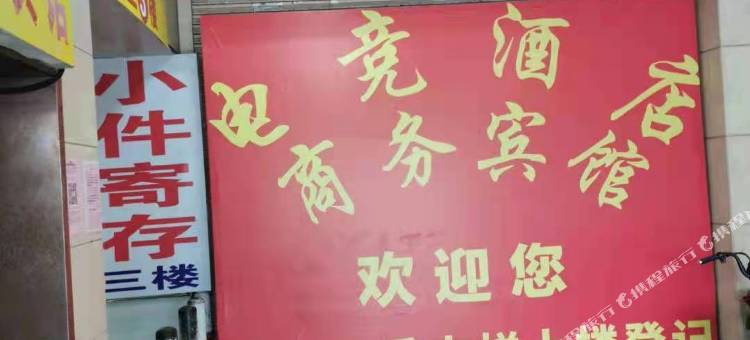 小件寄存
三楼
电竞酒店
商务宾馆
欢迎您
楼登记
携程旅行
携程旅行